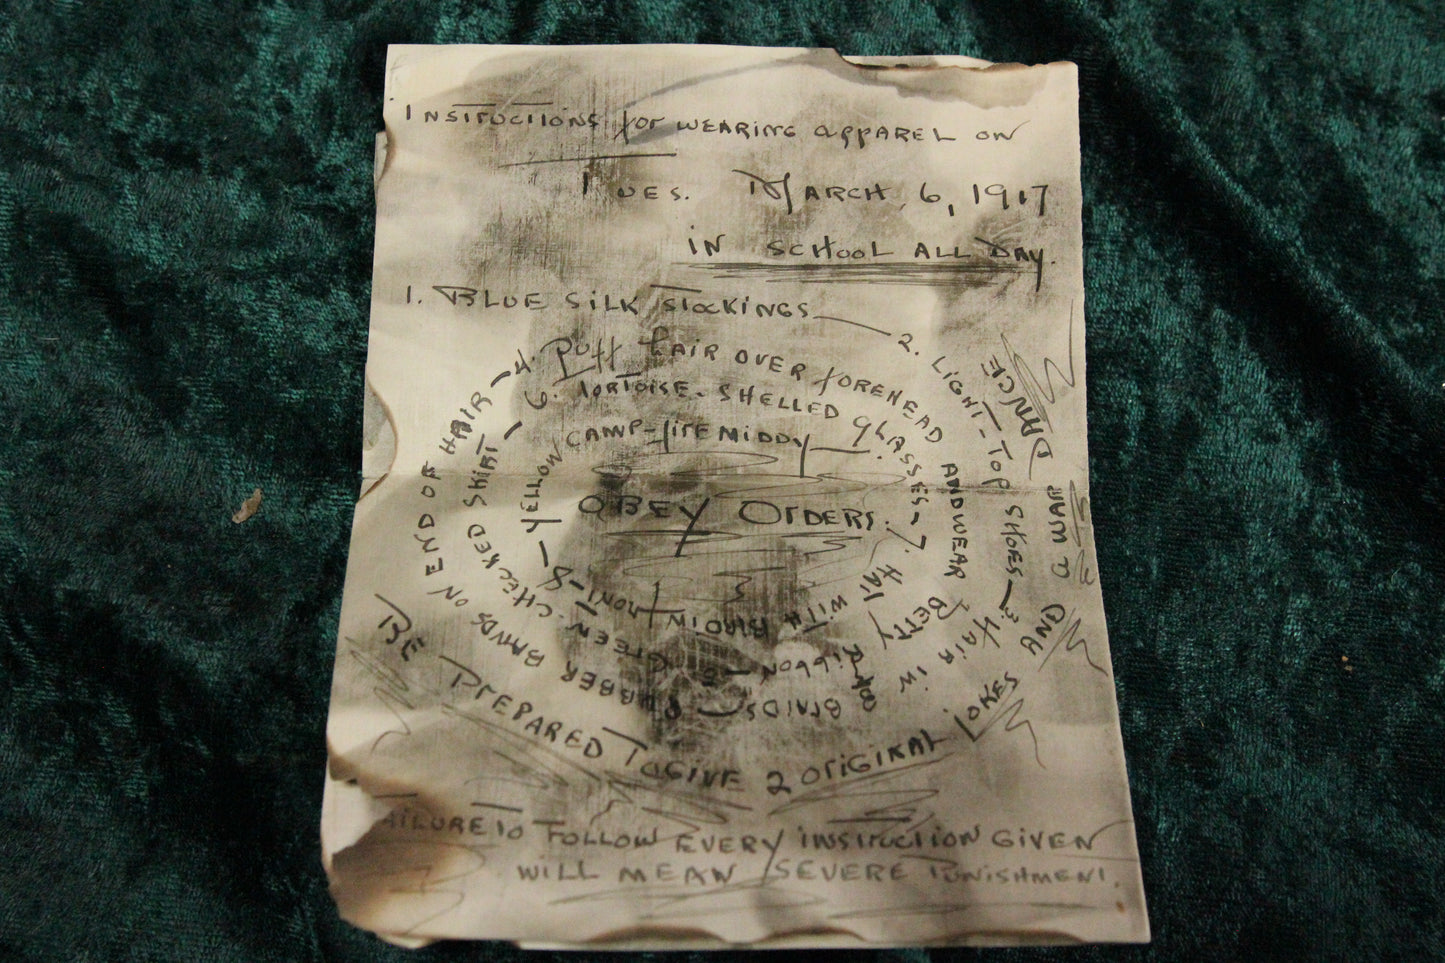 INSTRUCTIONS for WEARING APPAREL ON
TUES. MARCH, 6, 1917
IN SCHOOL ALL DAY.
1. BLUE SILK STOCKINGS — 2. LIGHT-TOP SHOES — 3. HAIR IN BRAIDS — RUBBER BANDS ON END OF HAIR — 4. Puff HAIR OVER FOREHEAD AND WEAR BETTY RIBBON — 5 — GREEN-CHECKED SKIRT — 6. TORTOISE-SHELLED GLASSES — 7. HAT WITH BIRD IN FRONT — 8 — YELLOW CAMP-FIRE MIDDY
OBEY ORDERS.
BE PREPARED TO GIVE 2 ORIGINAL JOKES AND A DANCE
FAILURE TO FOLLOW EVERY INSTRUCTION GIVEN
WILL MEAN SEVERE PUNISHMENT.